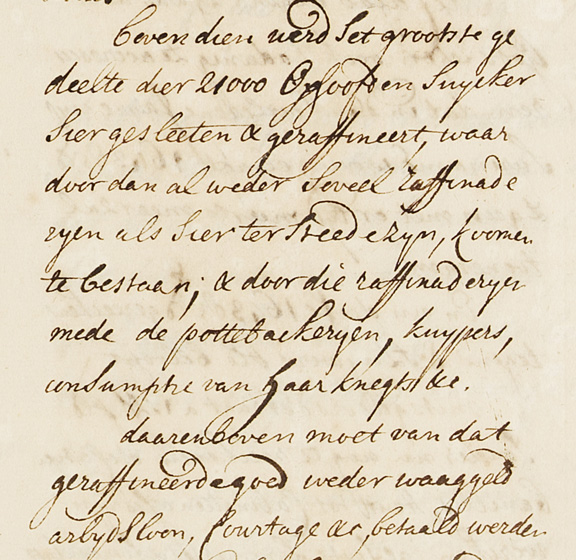 bovendien werd het grootste ge
deelte dier 21000 Oxhoofden Suycker
hier gesleeten & geraffineert, waar
door dan al weder soveel raffinade
ryen als hier ter steede zyn, koomen
te bestaan; & door die raffinaderyen
mede de pottebackeryen, kuypers,
consumptie van haar knegts &c.
daarenboven moet van dat
geraffineerde goed weder waaggeld
arbydsloon, Courtage &c, betaald werden